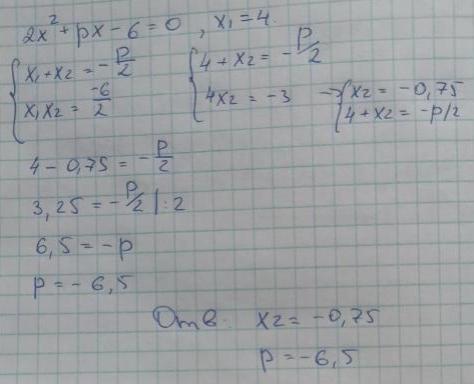 2x² + px - 6 = 0 , x₁ = 4.
{ x₁ + x₂ = -p/2 { 4 + x₂ = -p/2
{ x₁x₂ = -6/2 { 4x₂ = -3 → { x₂ = -0,75
{ 4 + x₂ = -p/2
4 - 0,75 = -p/2
3,25 = -p/2 | : 2
6,5 = -p
p = - 6,5
Отв. x₂ = -0,75
p = -6,5